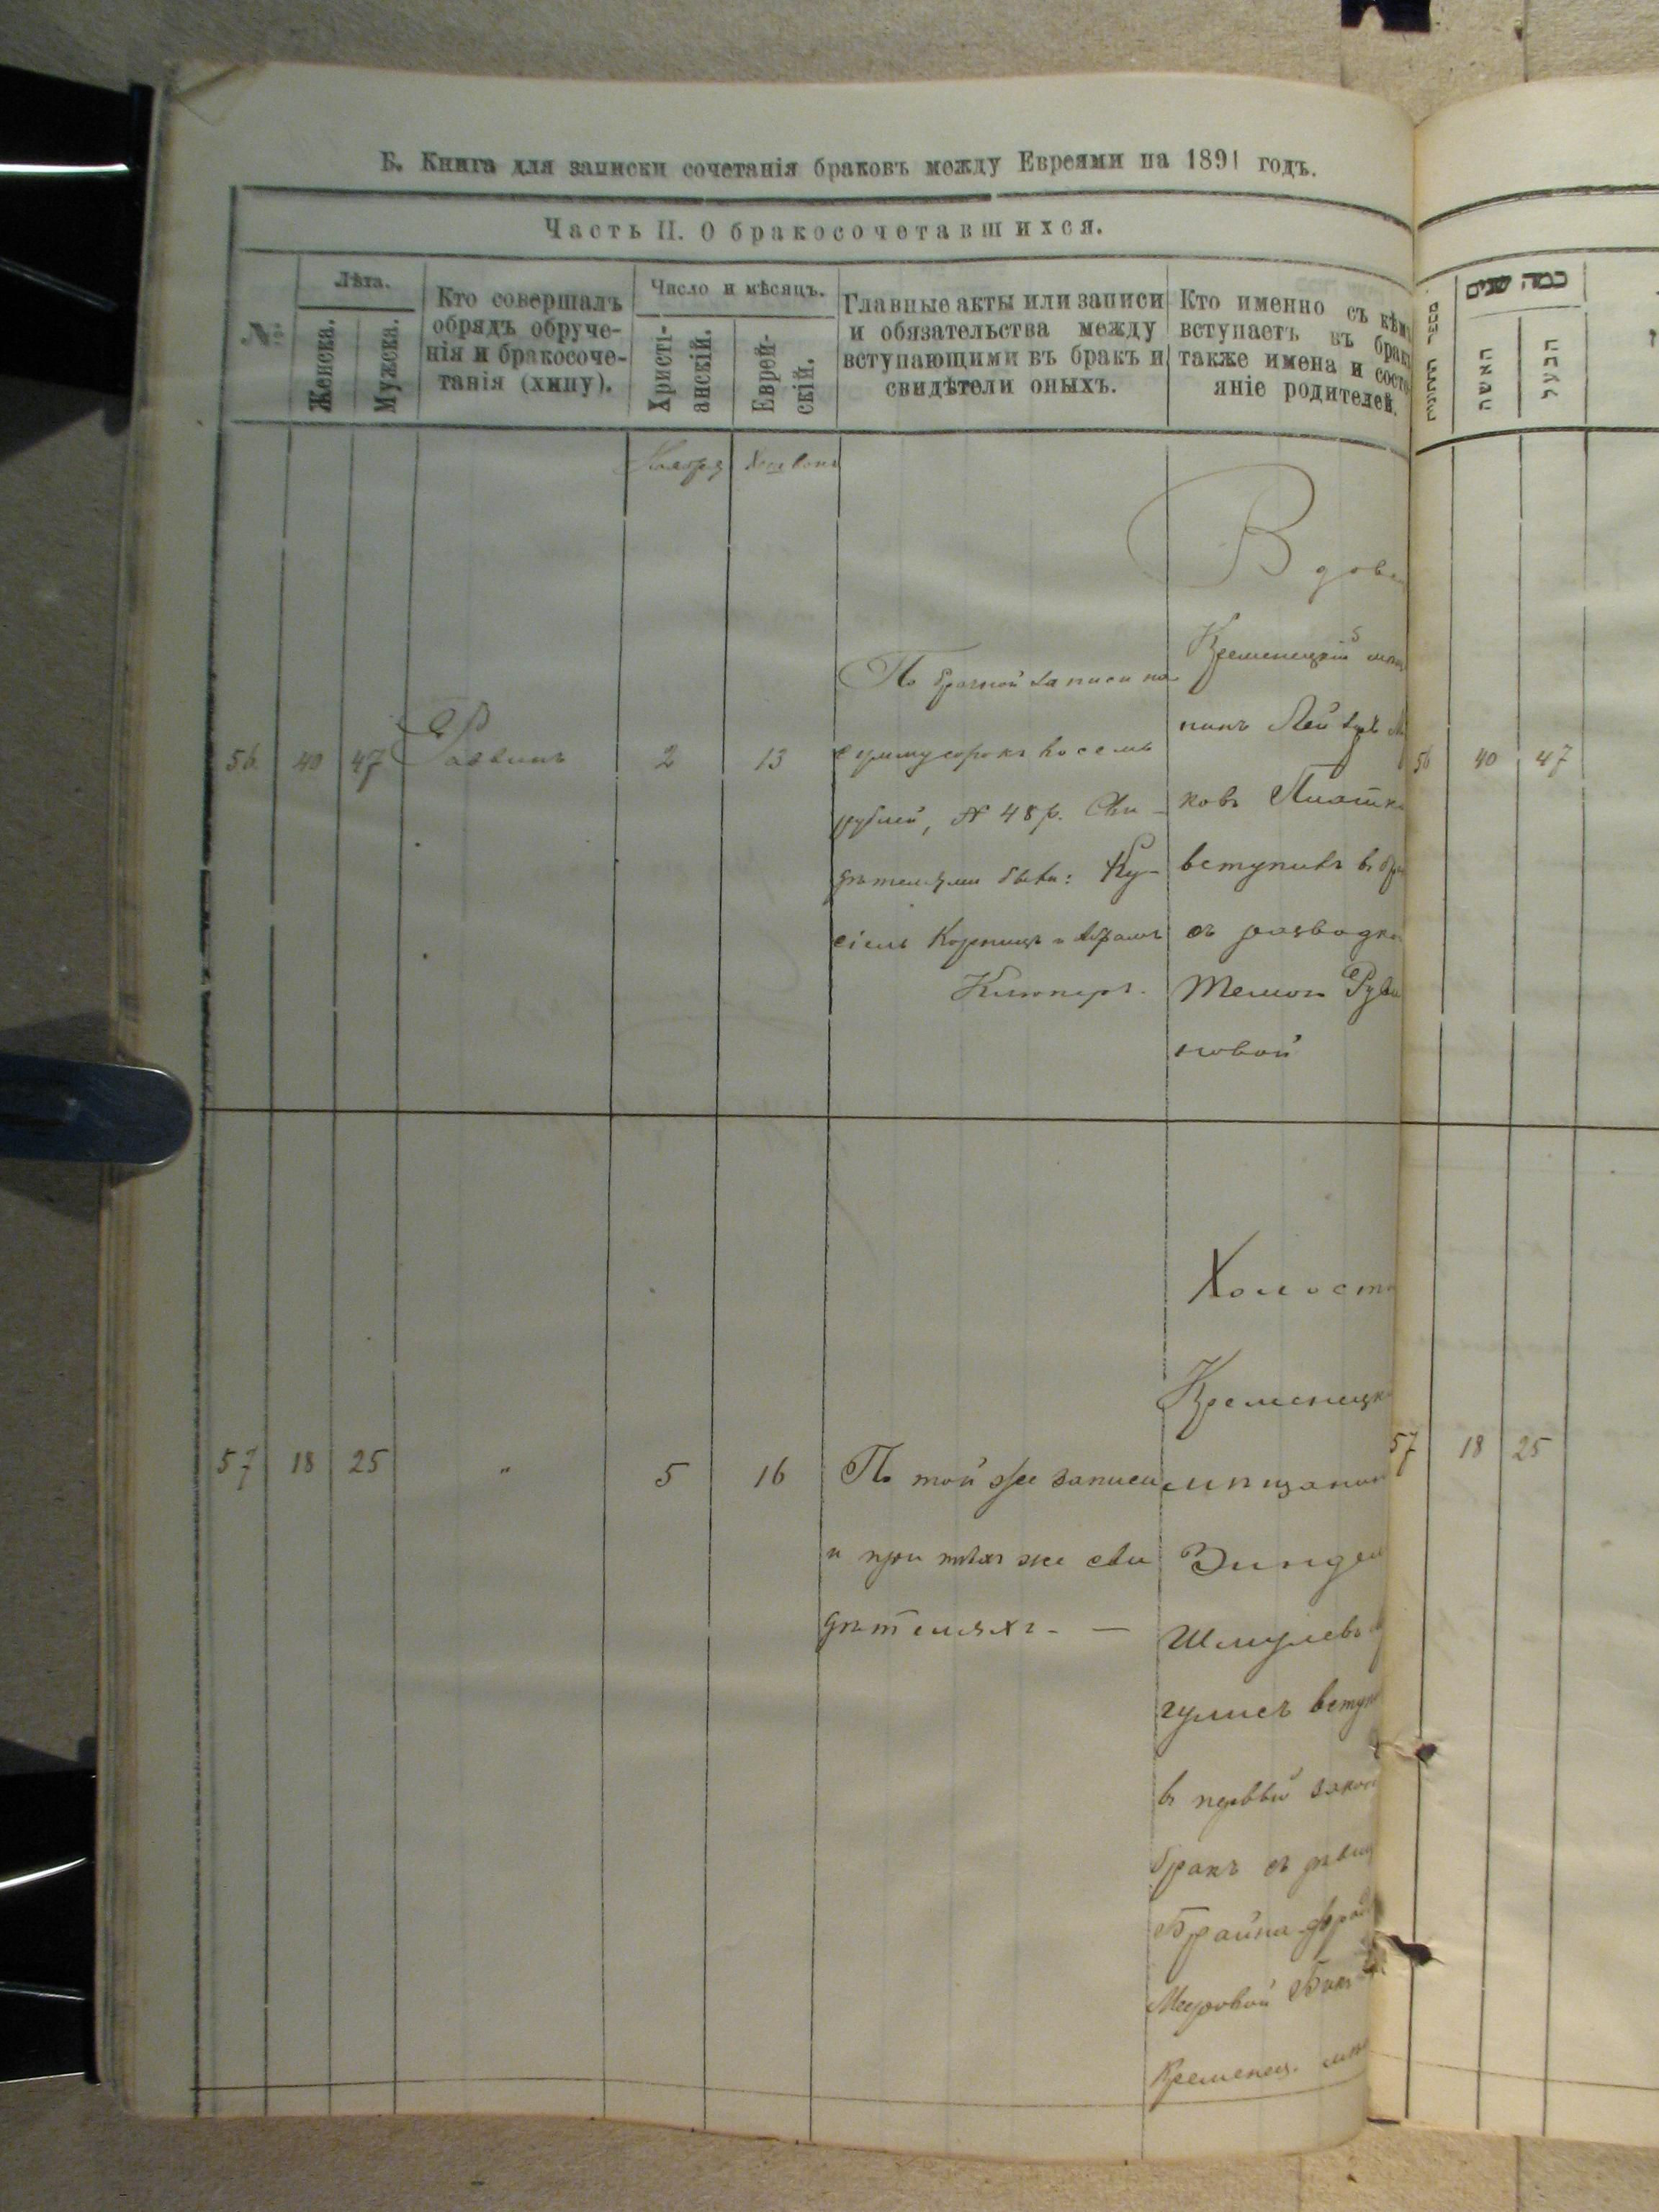 Б. Книга для записки сочетанія браковъ между Евреями на 1891 годъ.
Часть II. О бракосочетавшихся.
№
Лѣта.
Женска.
Мужска.
Кто совершалъ
обрядъ обруче-
нія и бракосоче-
танія (хипу).
Число и мѣсяцъ.
Христі-
анскій.
Еврей-
скій.
Главные акты или записи
и обязательства между
вступающими въ бракъ и
свидѣтели оныхъ.
Кто именно съ кѣмъ
вступаетъ въ бракъ
также имена и состо-
яніе родителей.
Ноября
56 40 47 Раввинъ 2 13
По брачной записи на
сумму сорокъ восемь
рублей, 48 р. Сви-
дѣтелями были: Ку-
сіель и Абрамъ
Вдовец
Кременецкій
нинъ Лейзеръ
ковъ
вступилъ въ
съ разводкой
Руви
новой
57 18 25 " 5 16
По той же записи
и при тѣхъ же сви
дѣтеляхъ. —
Холост
Кременецк
мѣщанин
Зиндел
Шмулевъ
гулисъ вступ
въ первый закон
бракъ съ дѣвиц
Брайна
Меировой
Кременец.
מספר החתונות
כמה שנים
האשה
הבעל
56 40 47
57 18 25